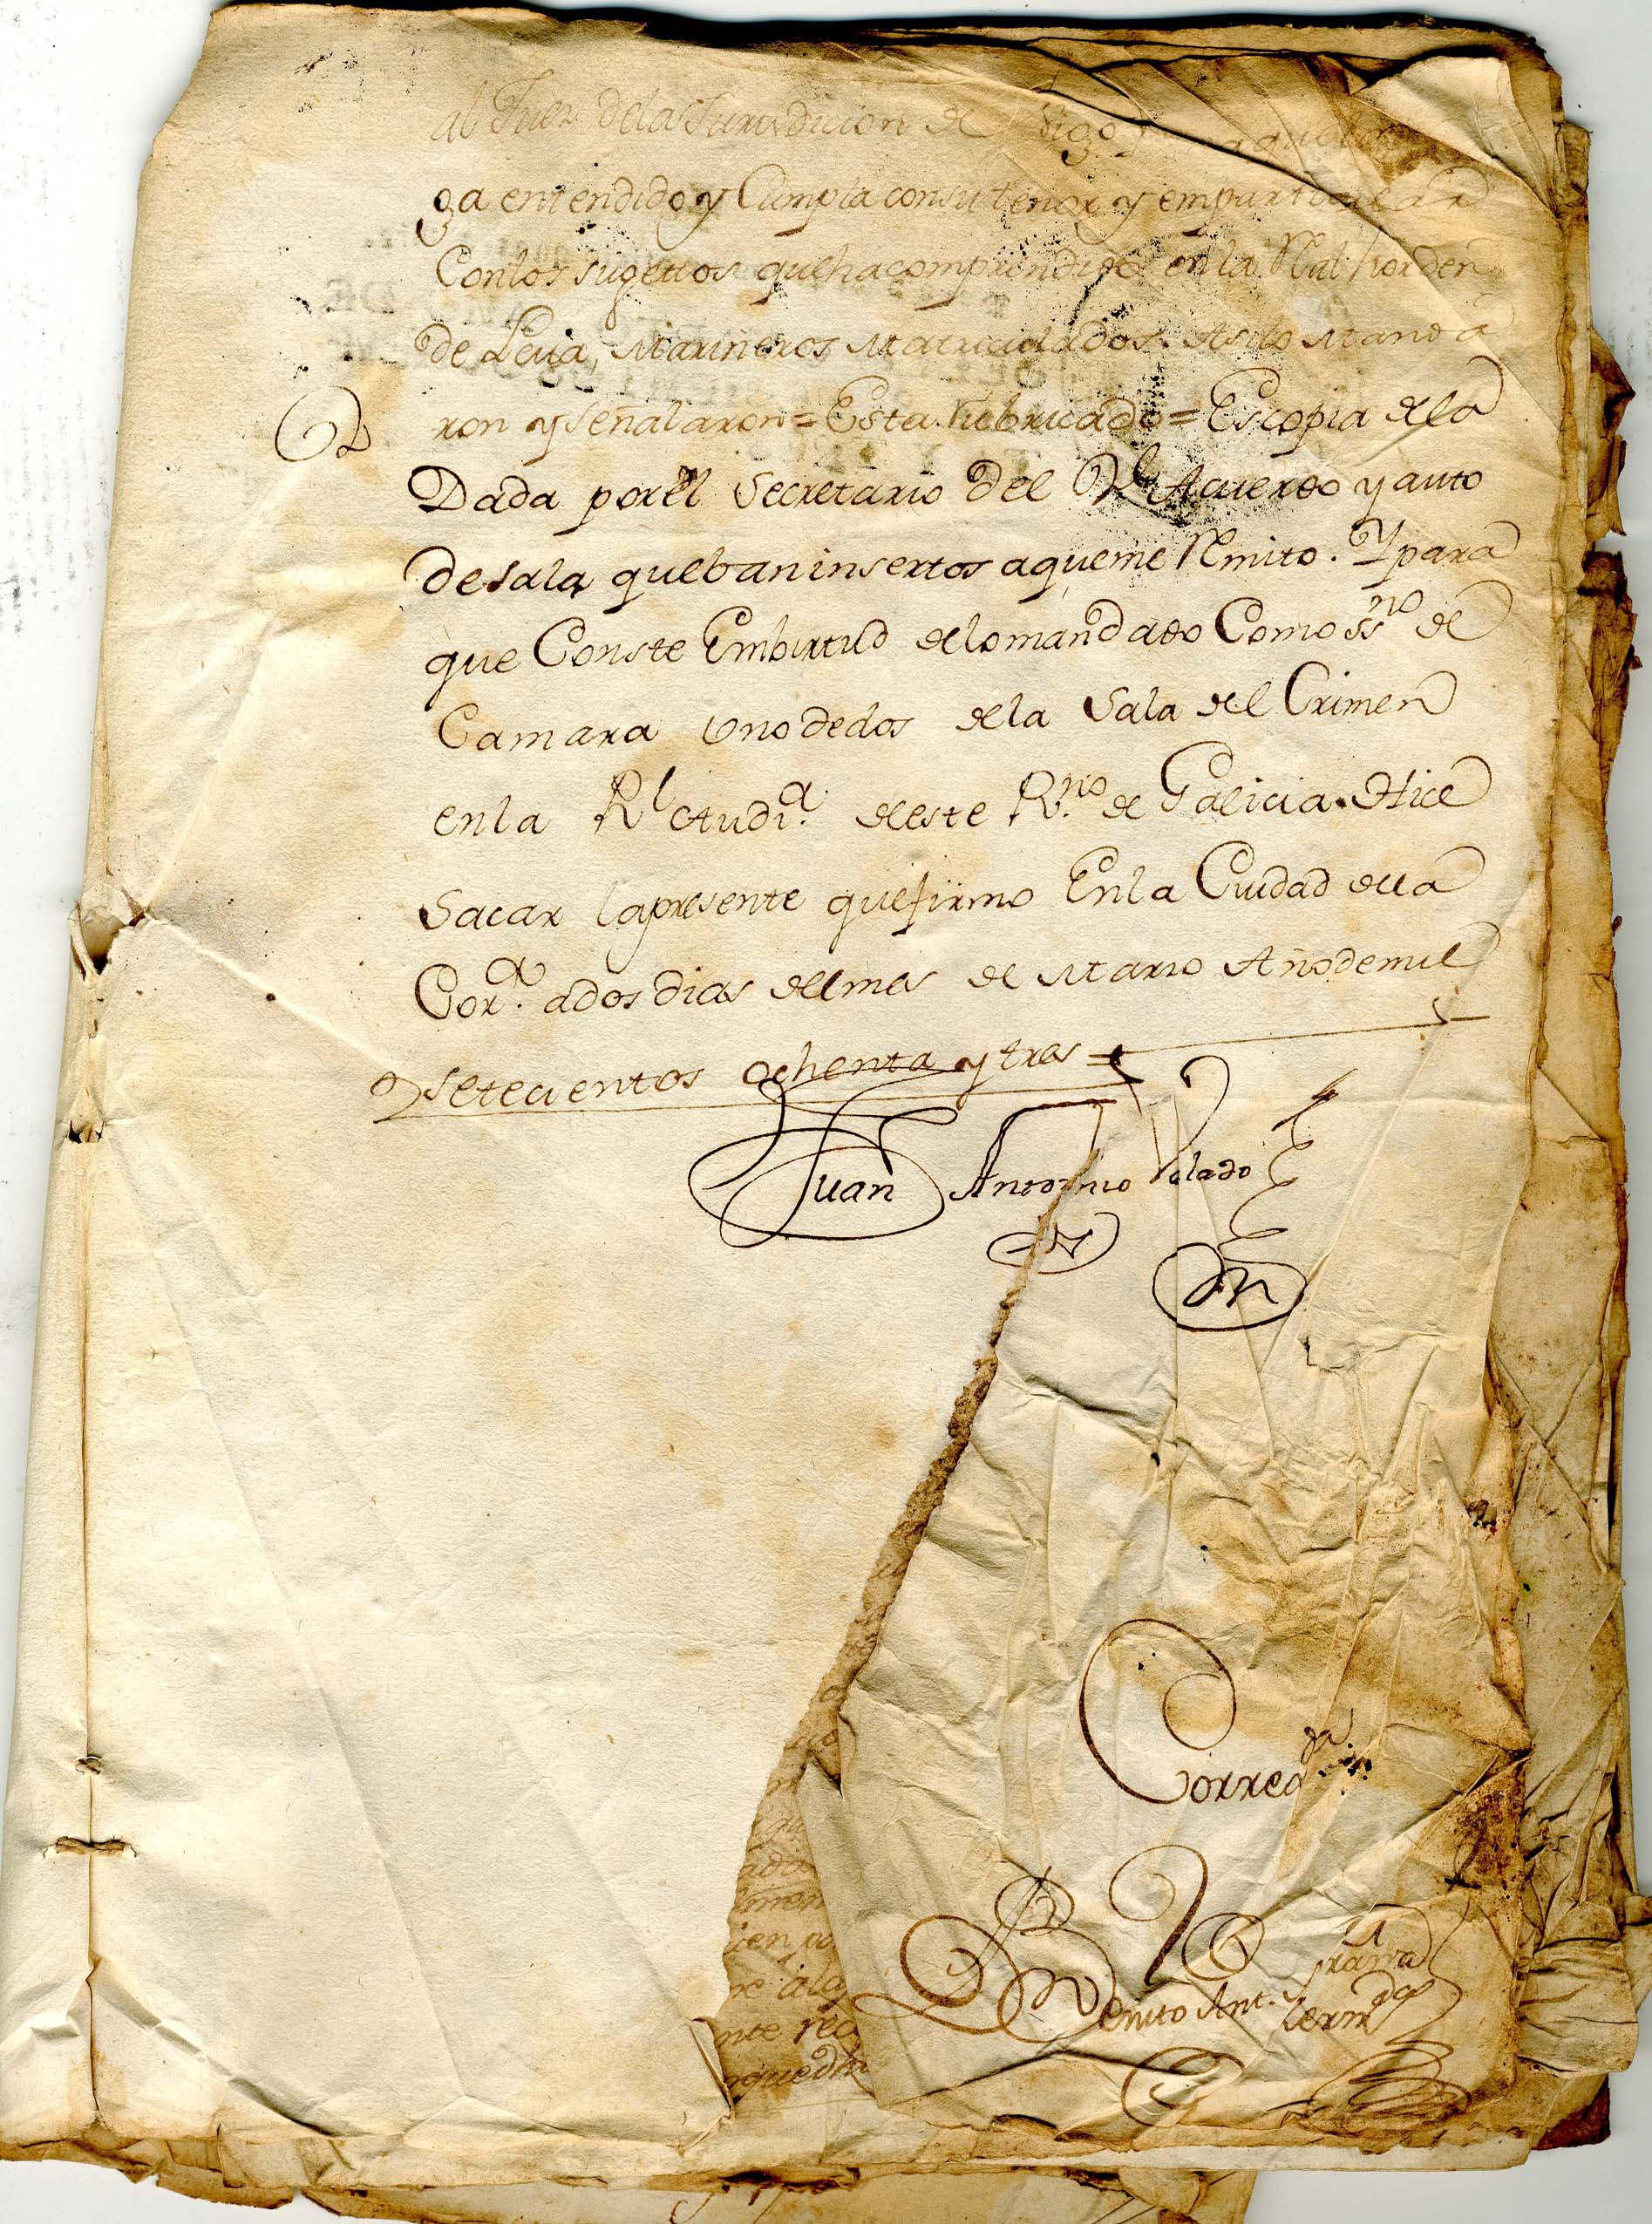 al Juez dela Jurisdicion de Vigo
ga entendido y Cumpla consu tenor y
Conlos sugettos quehacomprendido enla Rl horden
de Leua, Marineros Matriculados. Asilo Manda
ron y señalaron = Esta Rubricado = Escopia dela
Dada porêl Secretario del Rl Acuerdo y auto
desala quebaninsertos aqueme Rmito. Y para
que Conste Embirtud delomandado Como ssno de
Camara Vnodedos dela Sala del Crimen
enla Rl Audia. deeste Rno. de Galicia. Hice
Sacar lapresente quefirmo Enla Ciudad dela
Cora. ados dias delmes de Marzo Añodemil
Setecientos ochenta y tres =
Juan Antonio
Correda.
Benito Ant.
ador
ien po
re ala
nte rec